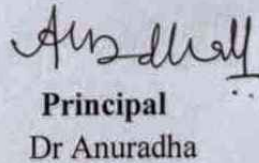 Principal
Dr Anuradha